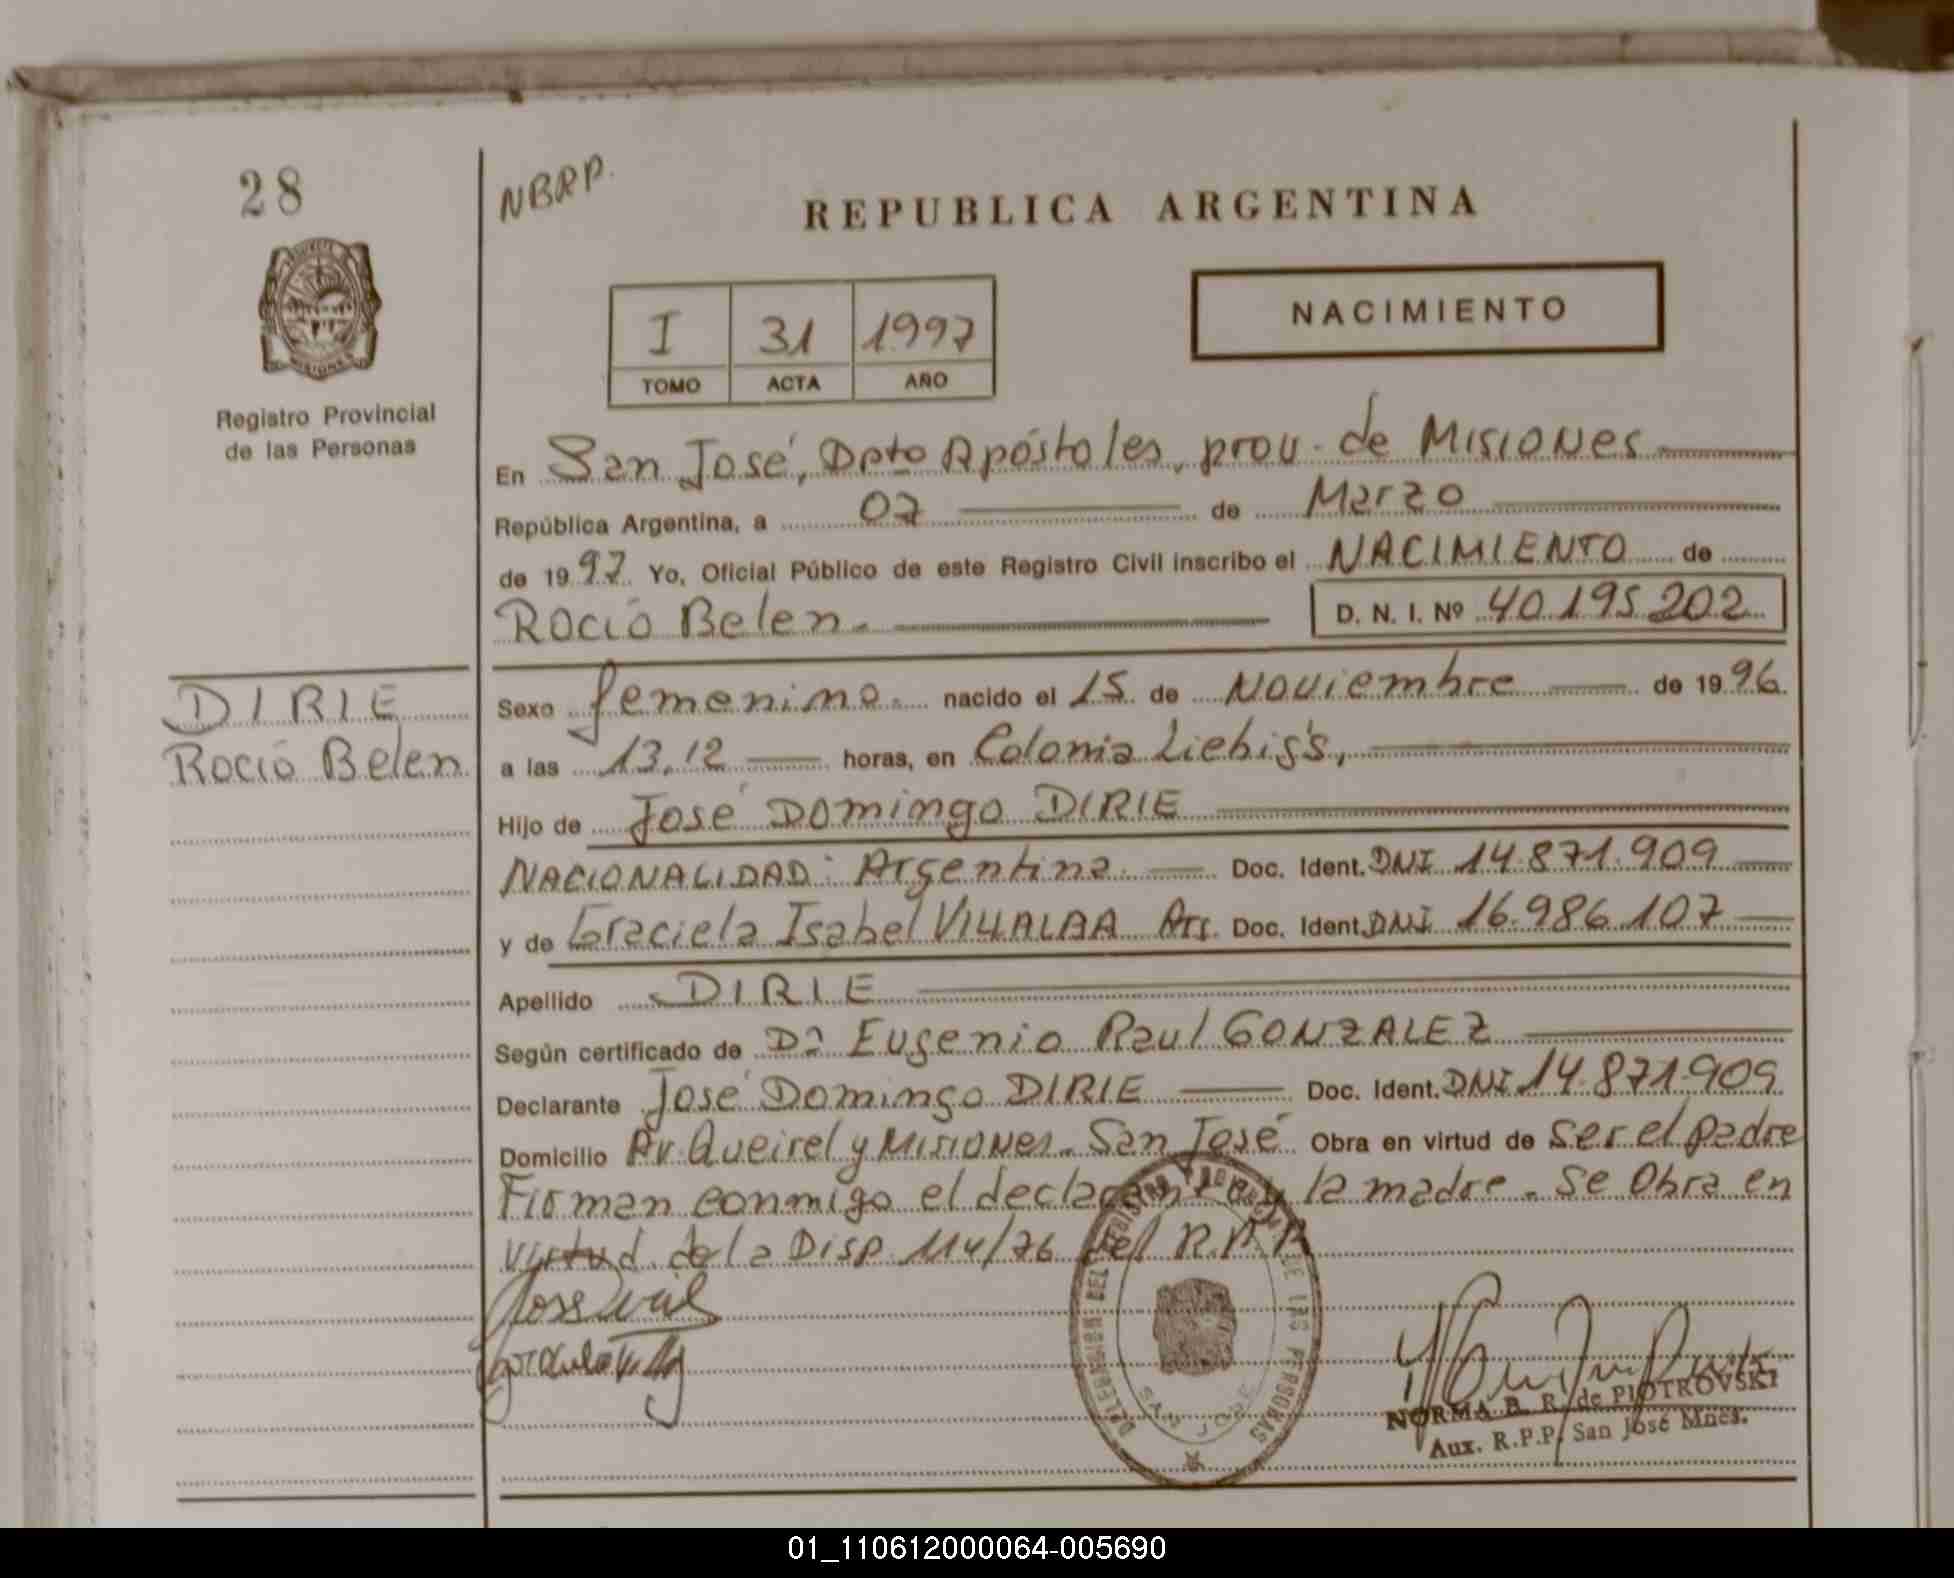 28
NBRP.
REPUBLICA ARGENTINA
I 31 1997
TOMO ACTA AÑO
NACIMIENTO
Registro Provincial
de las Personas
En San José, Dpto Apóstoles, prov. de MISIONES
República Argentina, a 07 de Marzo
de 1997. Yo, Oficial Público de este Registro Civil inscribo el NACIMIENTO de
Rocío Belen. D. N. I. Nº 40.195.202
DIRIE
Rocío Belen
Sexo femenino. nacido el 15 de Noviembre de 1996.
a las 13,12 horas, en Colonia Liebig's,
Hijo de José Domingo DIRIE
NACIONALIDAD: Argentina. Doc. Ident. DNI 14.871.909
y de Graciela Isabel VILLALBA Arg. Doc. Ident. DNI 16.986.107
Apellido DIRIE
Según certificado de Dº Eugenio Raul GONZALEZ
Declarante José Domingo DIRIE Doc. Ident. DNI 14.871.909
Domicilio Av. Queirel y Misiones. San José Obra en virtud de ser el padre
Firman conmigo el declarante y la madre. Se Obra en
virtud de la Disp. 114/76 del R.P.P.
DELEGACION DEL REGISTRO PROVINCIAL DE LAS PERSONAS
SAN JOSE
NORMA B. R. de PIOTROVSKI
Aux. R.P.P. San José Mnes.
01_110612000064-005690